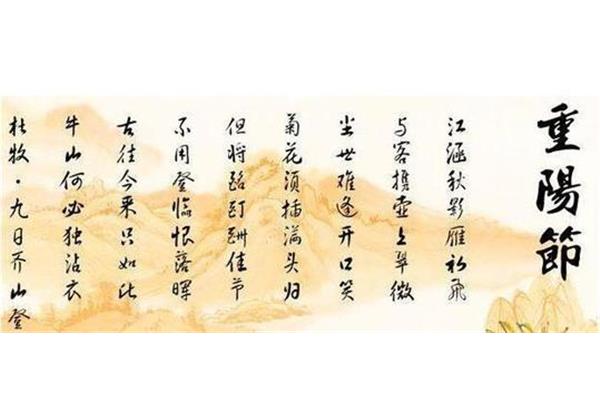 重陽節
江涵秋影雁初飛
与客携壶上翠微
尘世难逢开口笑
菊花须插满头归
但将酩酊酬佳节
不用登临恨落晖
古往今来只如此
牛山何必独沾衣
杜牧·九日齐山登